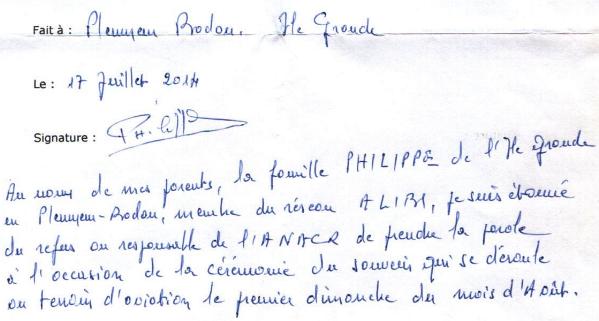 Fait à : Pleumeur Bodou. Ile Grande
Le : 17 Juillet 2014
Signature : Philippe
Au noms de mes parents, la famille PHILIPPE de l'Ile Grande
en Pleumeur-Bodou, membre du réseau ALIBI, je suis étonné
du refus au responsable de l'ANACR de prendre la parole
à l'occasion de la cérémonie du souvenir qui se déroule
au terrain d'aviation le premier dimanche du mois d'Août.